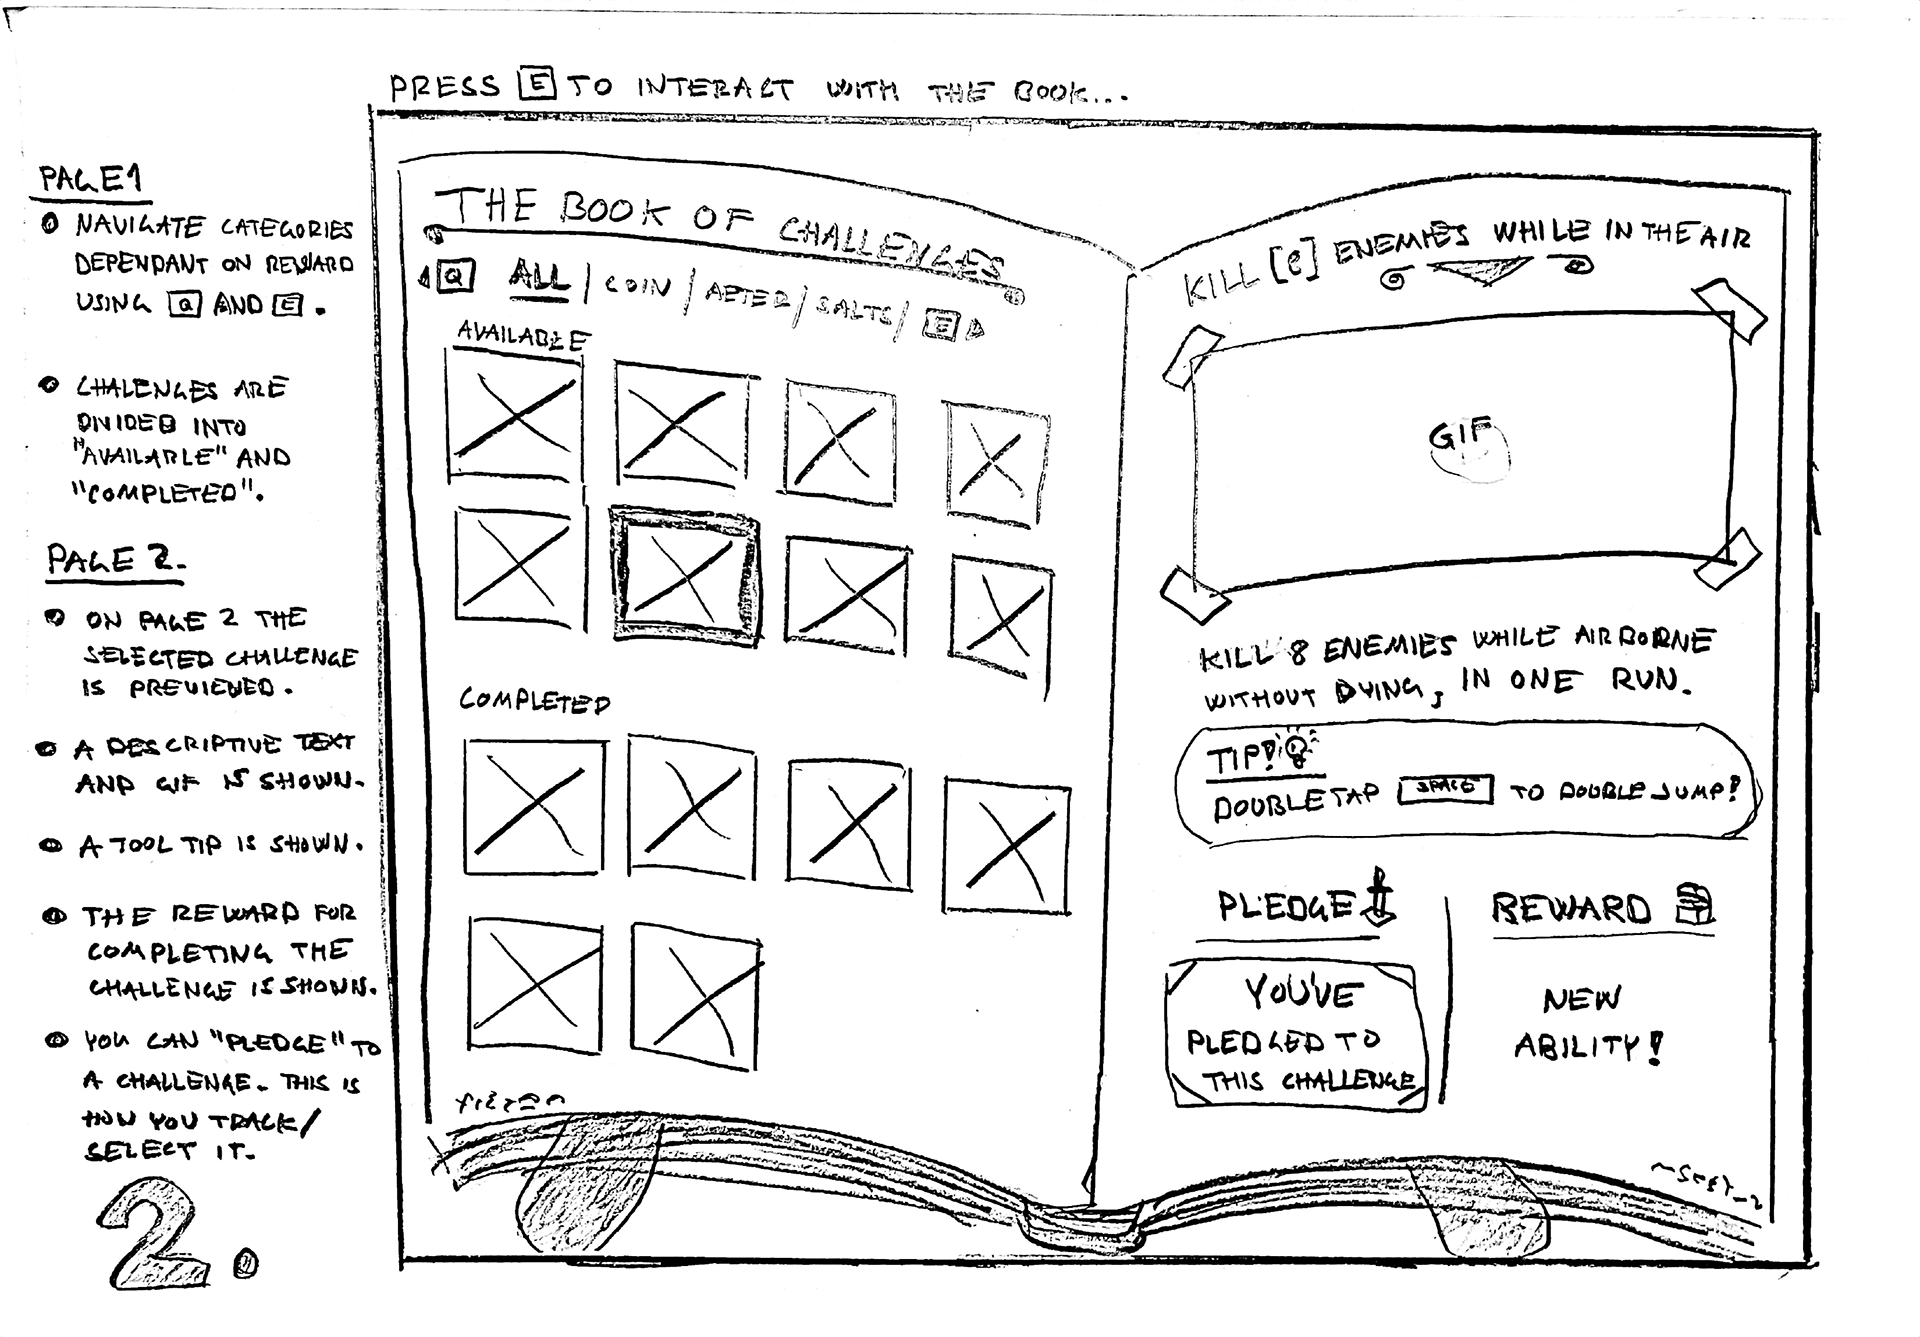 PRESS E TO INTERACT WITH THE BOOK...
PAGE1
NAVIGATE CATEGORIES
DEPENDANT ON REWARD
USING Q AND E.
CHALENGES ARE
DIVIDED INTO
"AVAILABLE" AND
"COMPLETED".
PAGE 2.
ON PAGE 2 THE
SELECTED CHALLENGE
IS PREVIEWED.
A DESCRIPTIVE TEXT
AND GIF IS SHOWN.
A TOOL TIP IS SHOWN.
THE REWARD FOR
COMPLETING THE
CHALLENGE IS SHOWN.
YOU CAN "PLEDGE" TO
A CHALLENGE. THIS IS
HOW YOU TRACK/
SELECT IT.
2.
THE BOOK OF CHALLENGES
Q ALL / COIN / / SALTS / E
AVAILABLE
COMPLETED
KILL [8] ENEMIES WHILE IN THE AIR
GIF
KILL 8 ENEMIES WHILE AIRBORNE
WITHOUT DYING, IN ONE RUN.
TIP!
DOUBLE TAP SPACE TO DOUBLE JUMP!
PLEDGE
YOU'VE
PLEDGED TO
THIS CHALLENGE
REWARD
NEW
ABILITY!